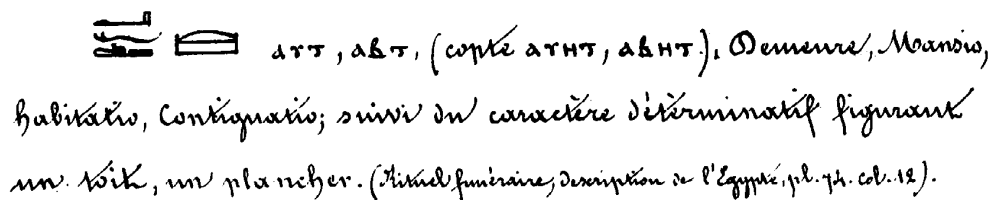 ⲁⲩⲧ, ⲁⲃⲧ, (copte ⲁⲩⲏⲧ, ⲁⲃⲏⲧ.), Demeure, Mansio,
habitatio, Contignatio; suivi du caractère déterminatif figurant
un toit, un plancher. (Rituel funéraire, description de l'Égypte, pl. 74. col. 12).